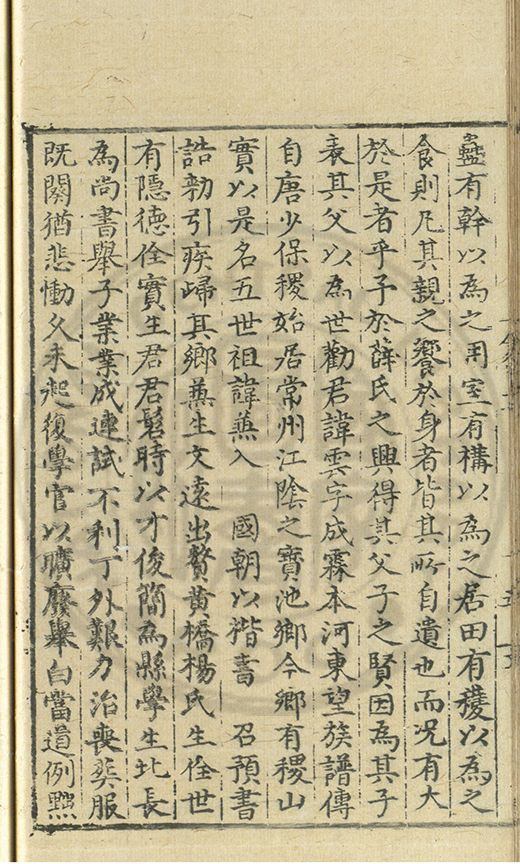 蠱有幹以為之用室有構以為之居田有穫以為之
食則凡其親之饗於身者皆其所自遺也而况有大
於是者乎予於薛氏之興得其父子之賢因為其子
表其父以為世勸君諱雲字成霖本河東望族譜傳
自唐少保稷始居常州江陰之寶池鄉今鄉有稷山
實以是名五世祖諱蕪入　國朝以楷書　召預書
誥勑引疾歸其鄉蕪生文遠出贅黃橋楊氏生佺世
有隱德佺實生君君髫時以才俊簡為縣學生比長
為尚書舉子業業成連試不利丁外艱力治喪葬服
既闋猶悲慟久未起復學官以曠廢舉白當道例黜